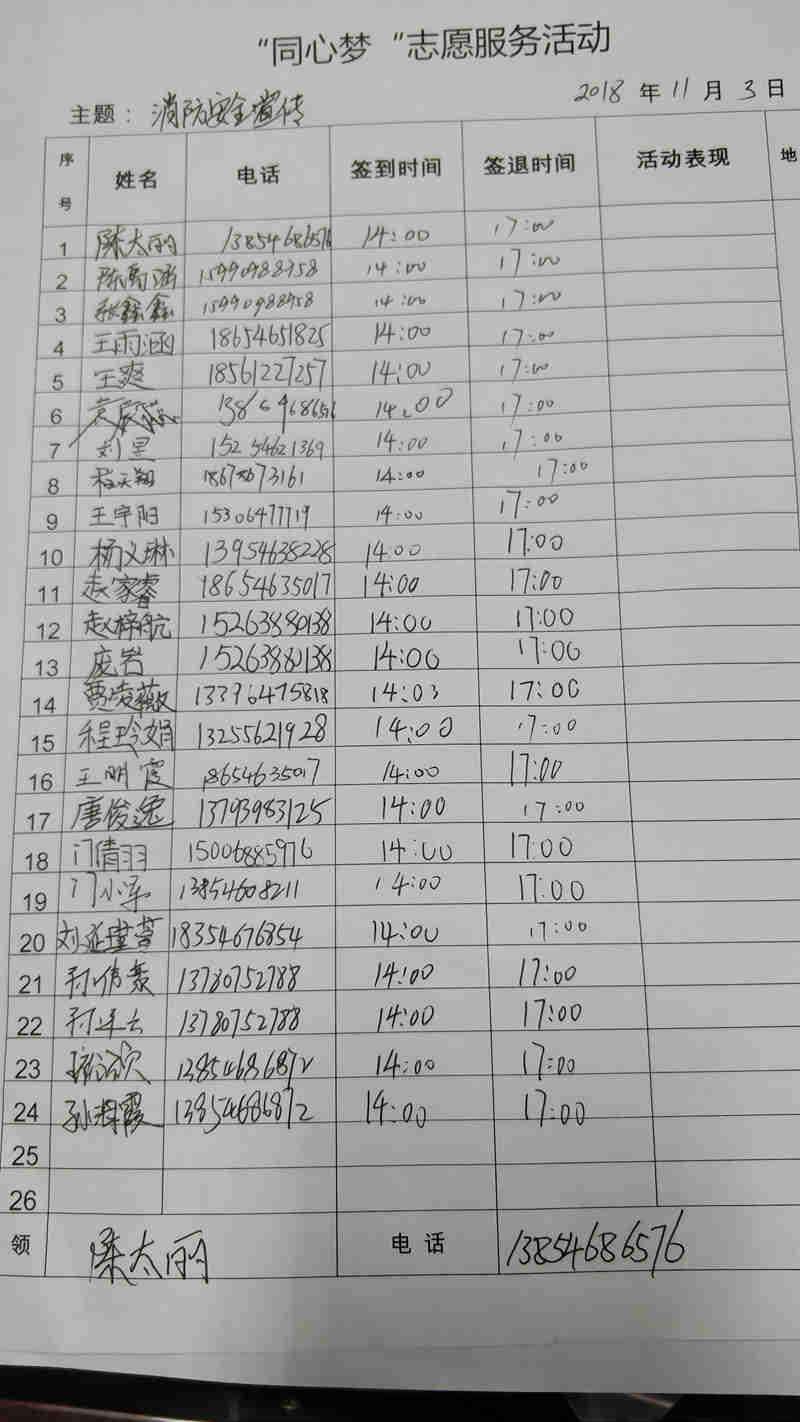 “同心梦“志愿服务活动
主题： 消防安全宣传 2018 年 11 月 3 日
序号 姓名 电话 签到时间 签退时间 活动表现 地
1 陈太丽 13854686576 14:00 17:00
2 15990988958 14:00 17:00
3 张鑫鑫 15990988958 14:00 17:00
4 王雨涵 18654651825 14:00 17:00
5 王爽 18561227257 14:00 17:00
6 14:00 17:00
7 刘星 15254621369 14:00 17:00
8 程天翔 18678673161 14:00 17:00
9 王宇阳 15306477719 14:00 17:00
10 杨义琳 13954638228 14:00 17:00
11 赵家睿 18654635017 14:00 17:00
12 赵梓航 15263880138 14:00 17:00
13 庞岩 15263880138 14:00 17:00
14 贾凌薇 13396475818 14:03 17:00
15 程玲娟 13255621928 14:00 17:00
16 王明霞 18654635017 14:00 17:00
17 唐俊逸 13793983125 14:00 17:00
18 门倩羽 15006885976 14:00 17:00
19 门小军 13854608211 14:00 17:00
20 18354676854 14:00 17:00
21 13780752788 14:00 17:00
22 13780752788 14:00 17:00
23 13854686872 14:00 17:00
24 孙翠霞 13854686872 14:00 17:00
25
26
领 陈太丽 电话 13854686576